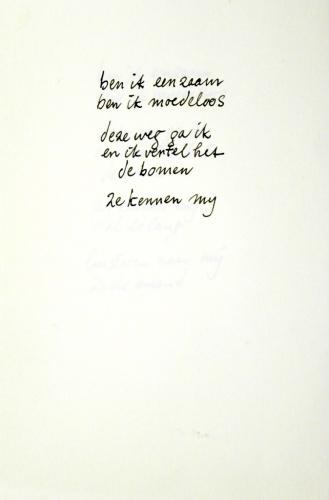 ben ik eenzaam
ben ik moedeloos
deze weg ga ik
en ik vertel het
de bomen
ze kennen mij